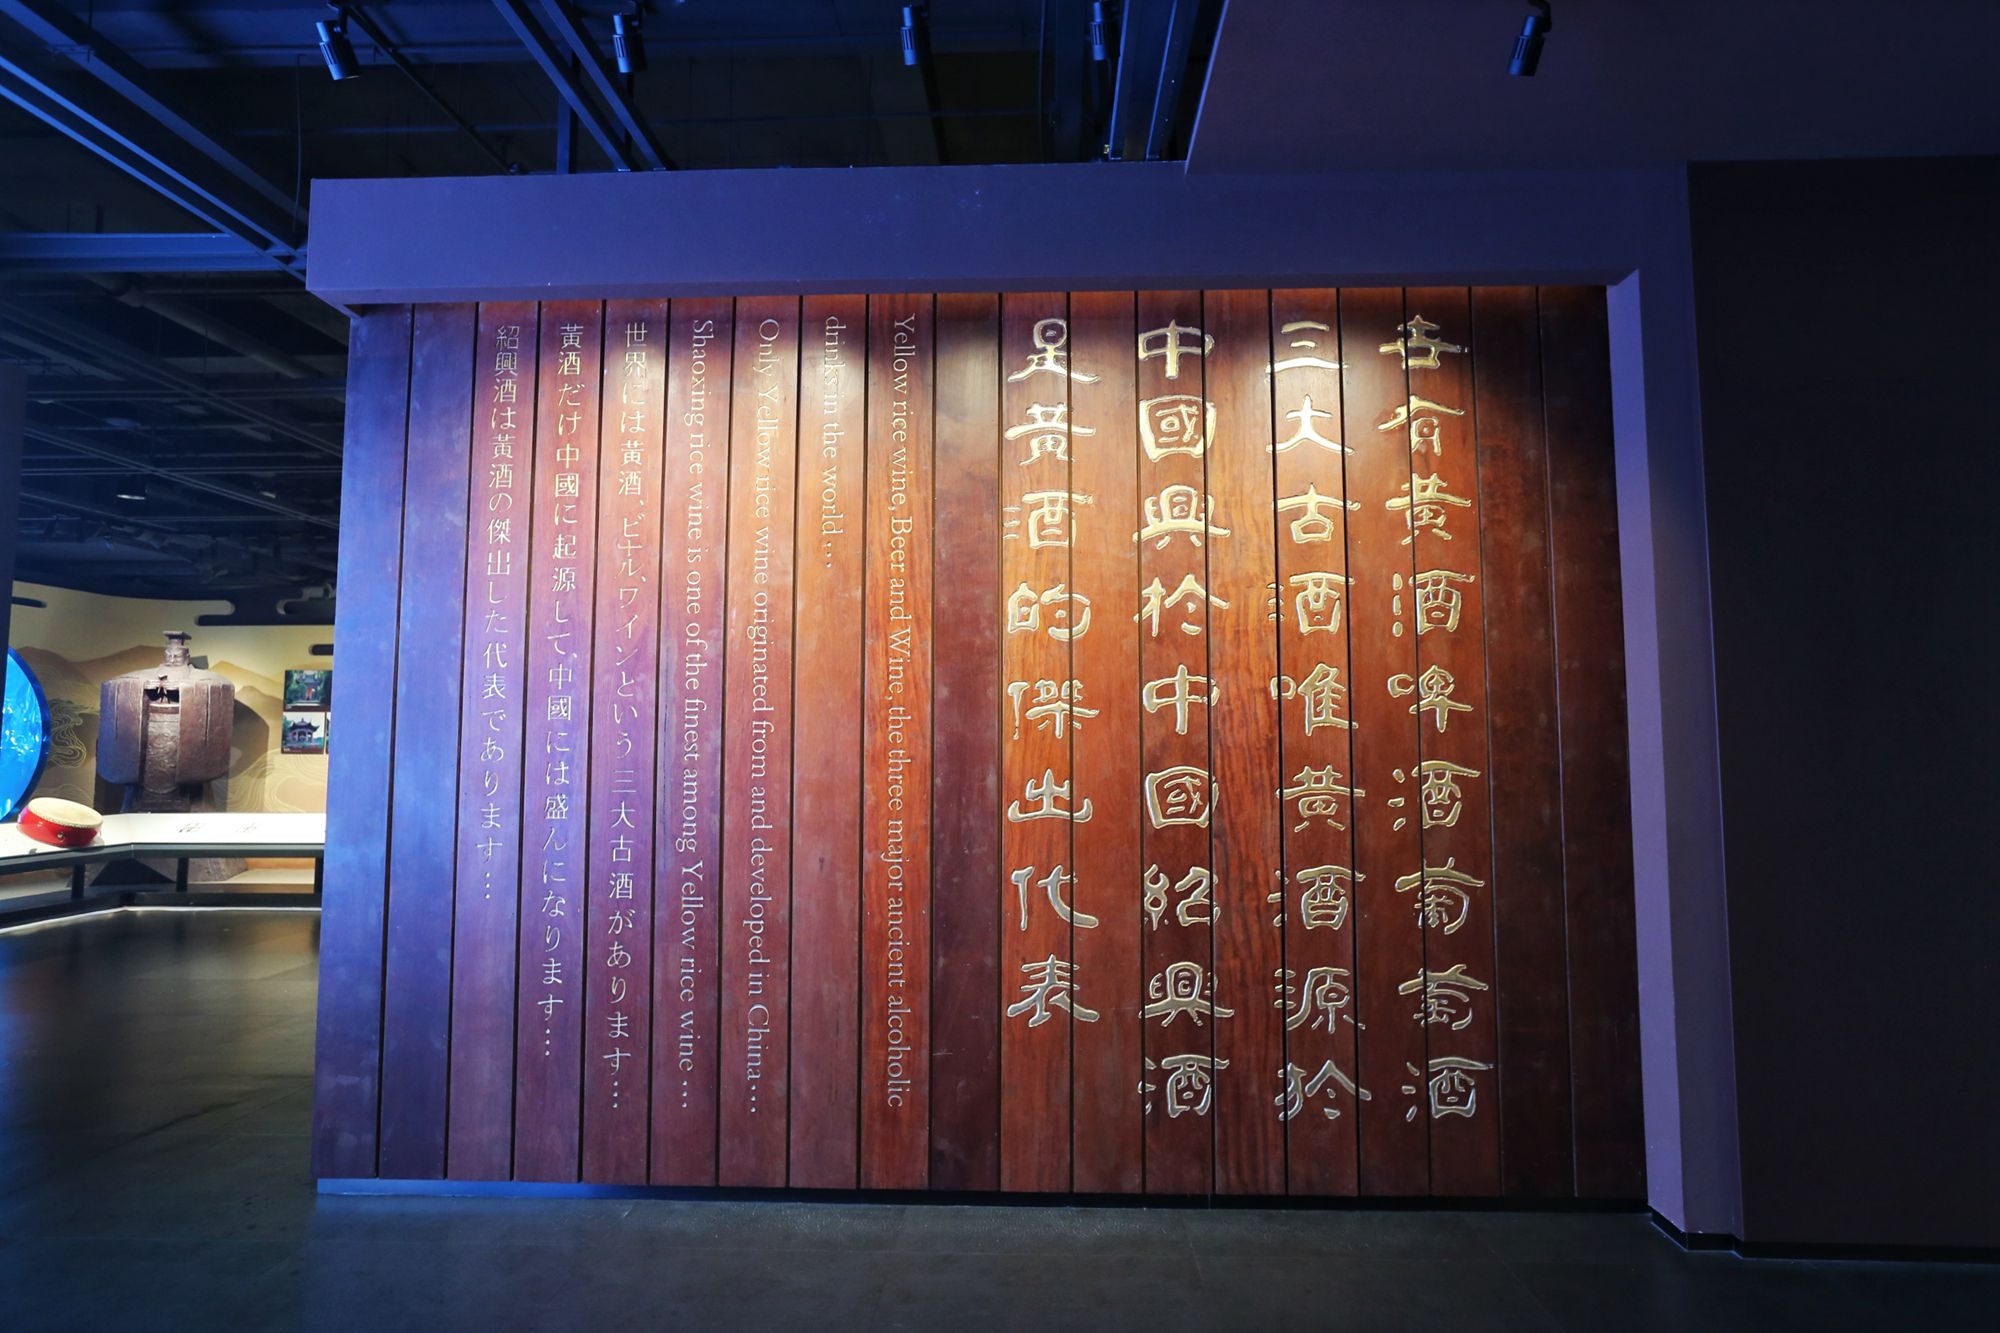 世有黄酒啤酒葡萄酒
三大古酒唯黄酒源於
中國興於中國紹興酒
是黄酒的傑出代表
Yellow rice wine, Beer and Wine, the three major ancient alcoholic
drinks in the world…
Only Yellow rice wine originated from and developed in China…
Shaoxing rice wine is one of the finest among Yellow rice wine…
世界には黄酒、ビナル、ワインという三大古酒があります…
黄酒だけ中國に起源して、中國には盛んになります…
紹興酒は黄酒の傑出した代表であります…